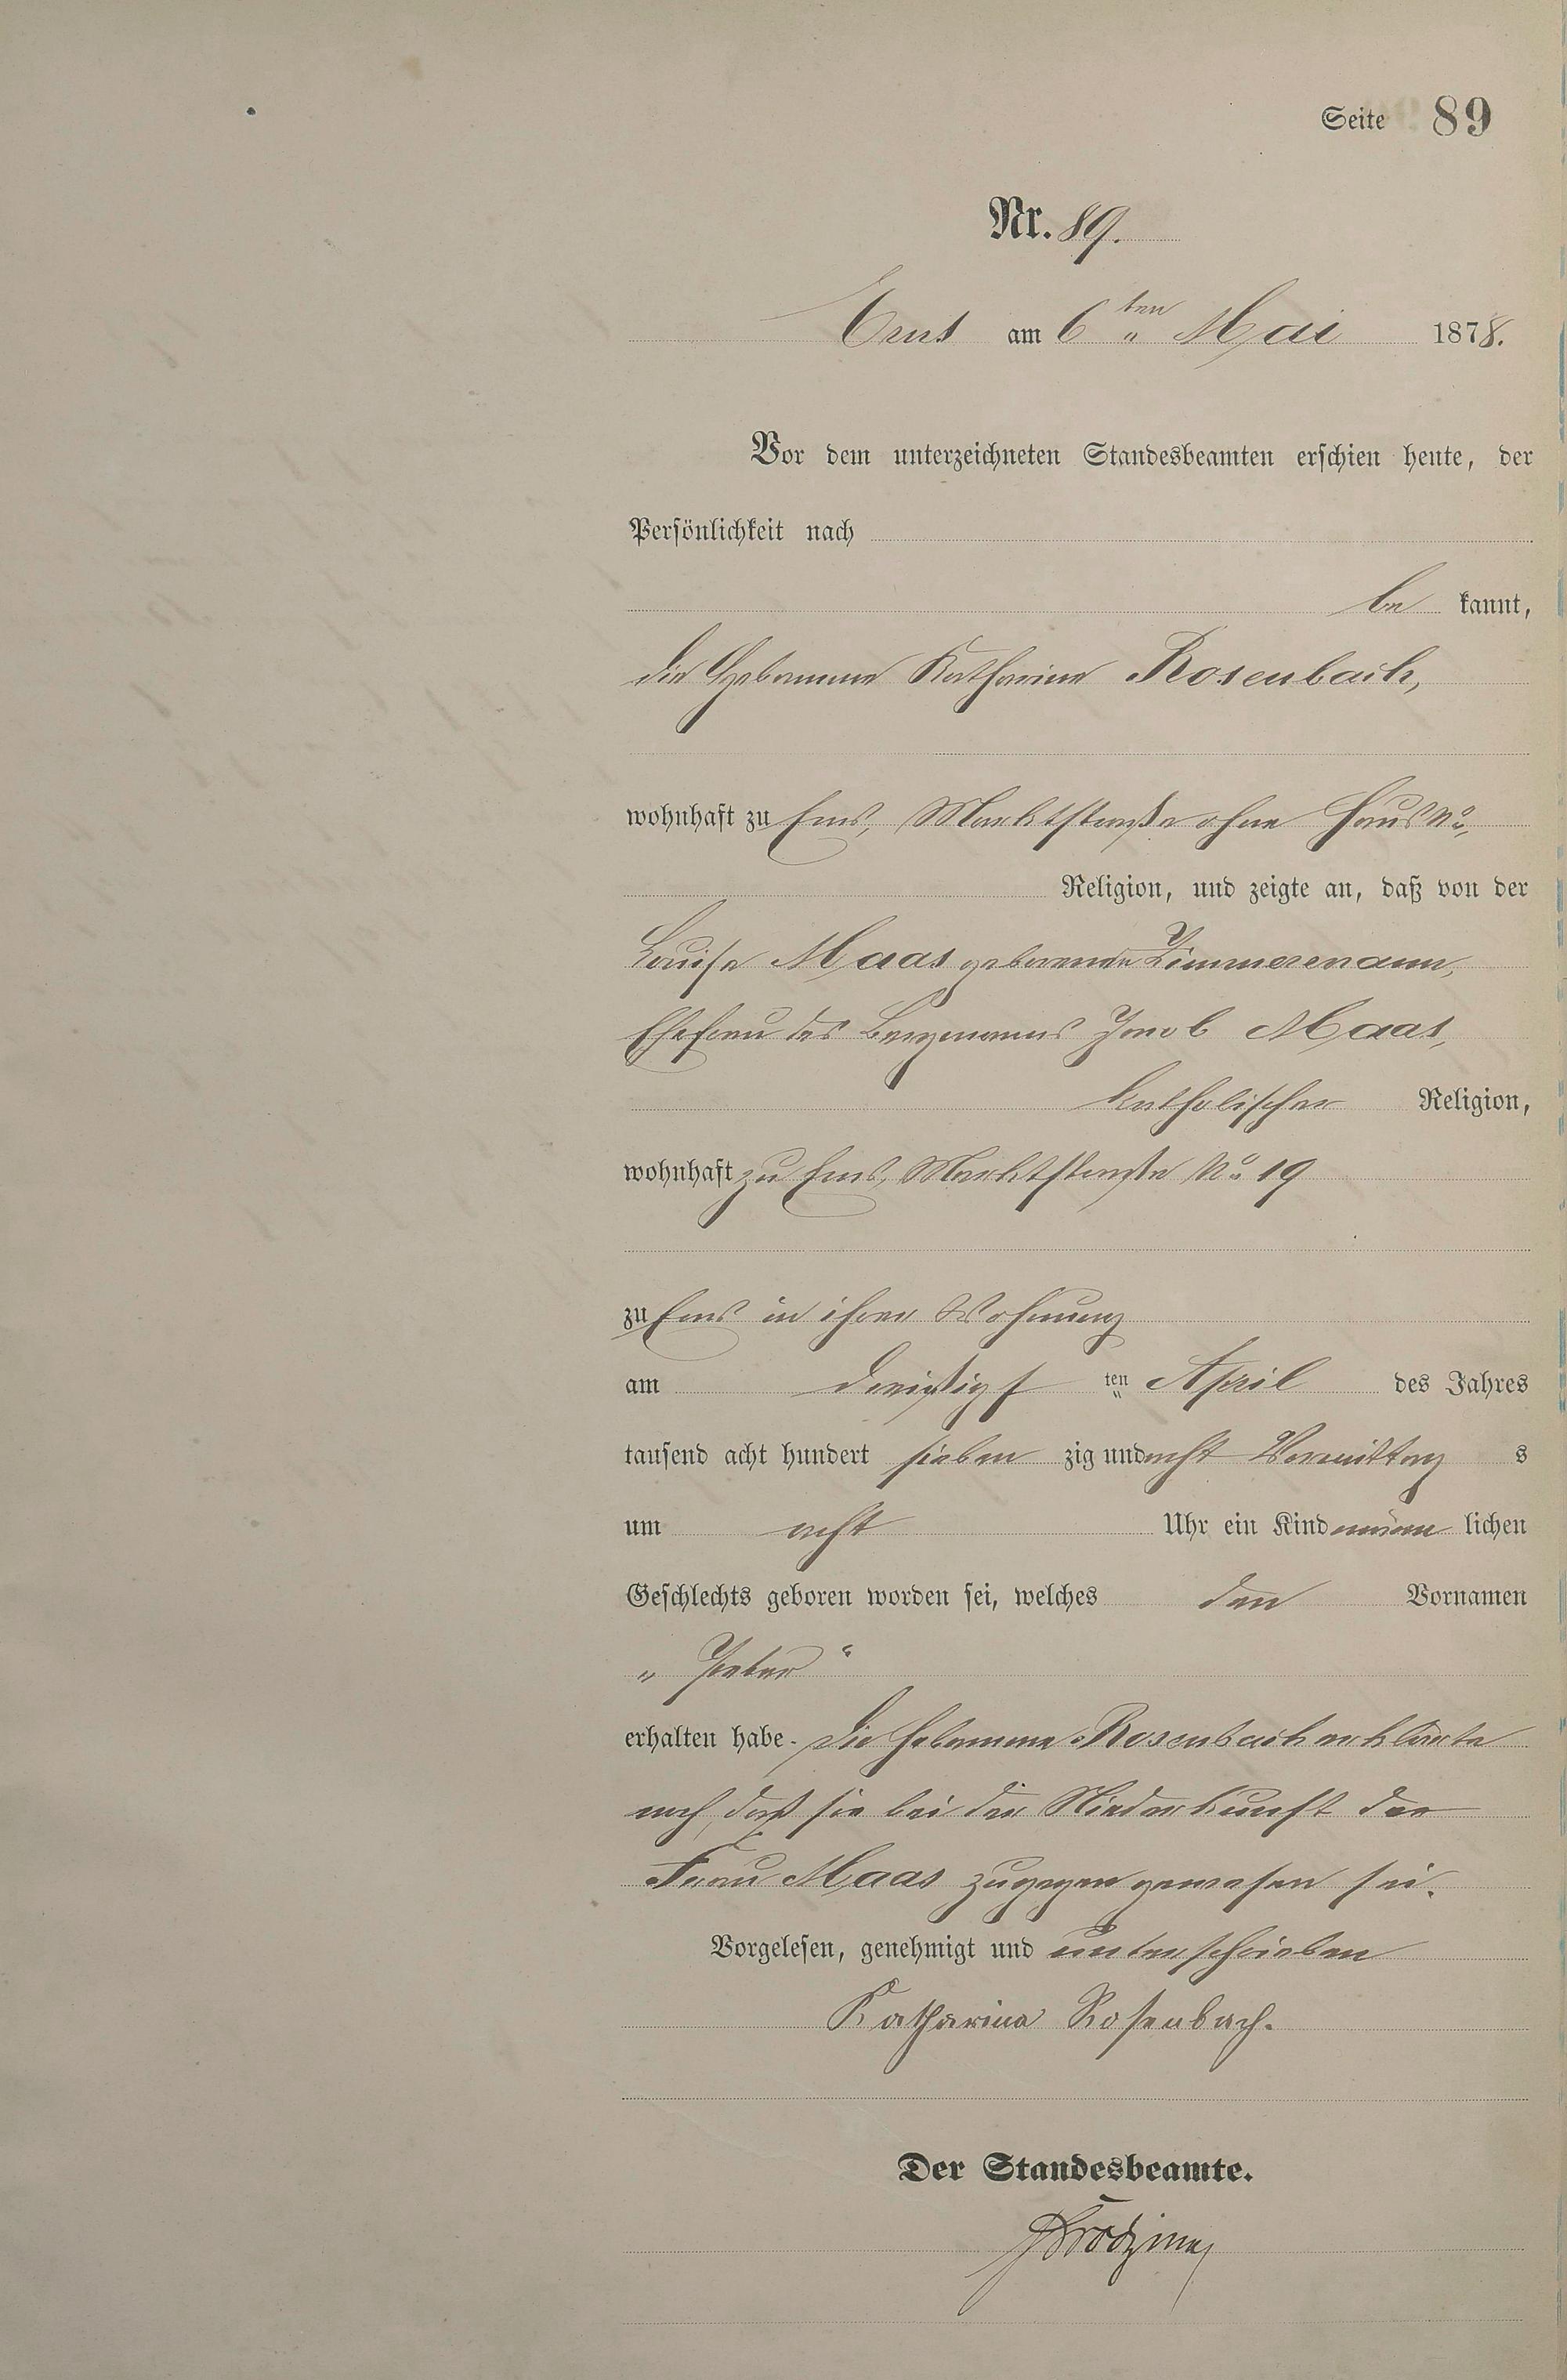 Seite 89
Nr. 89.
Ems am 6ten Mai 1878.
Vor dem unterzeichneten Standesbeamten erschien heute, der
Persönlichkeit nach
be kannt,
die Hebamme Katharina Rosenbach,
wohnhaft zu Ems, Marktstraße ohne Haus No,
Religion, und zeigte an, daß von der
Louise Maas geborene Zimmermann,
Ehefrau des Bergmanns Jacob Maas,
katholischer Religion,
wohnhaft zu Ems, Marktstraße No 19
zu Ems in ihrer Wohnung
am dreißigs ten April des Jahres
tausend acht hundert sieben zig und acht Vormittag s
um acht Uhr ein Kind männ lichen
Geschlechts geboren worden sei, welches den Vornamen
„Peter“
erhalten habe. Die Hebamme Rosenbach erklärte
noch, daß sie bei der Niederkunft der
Frau Maas zugegen gewesen sei.
Vorgelesen, genehmigt und unterschrieben
Katharina Rosenbach.
Der Standesbeamte.